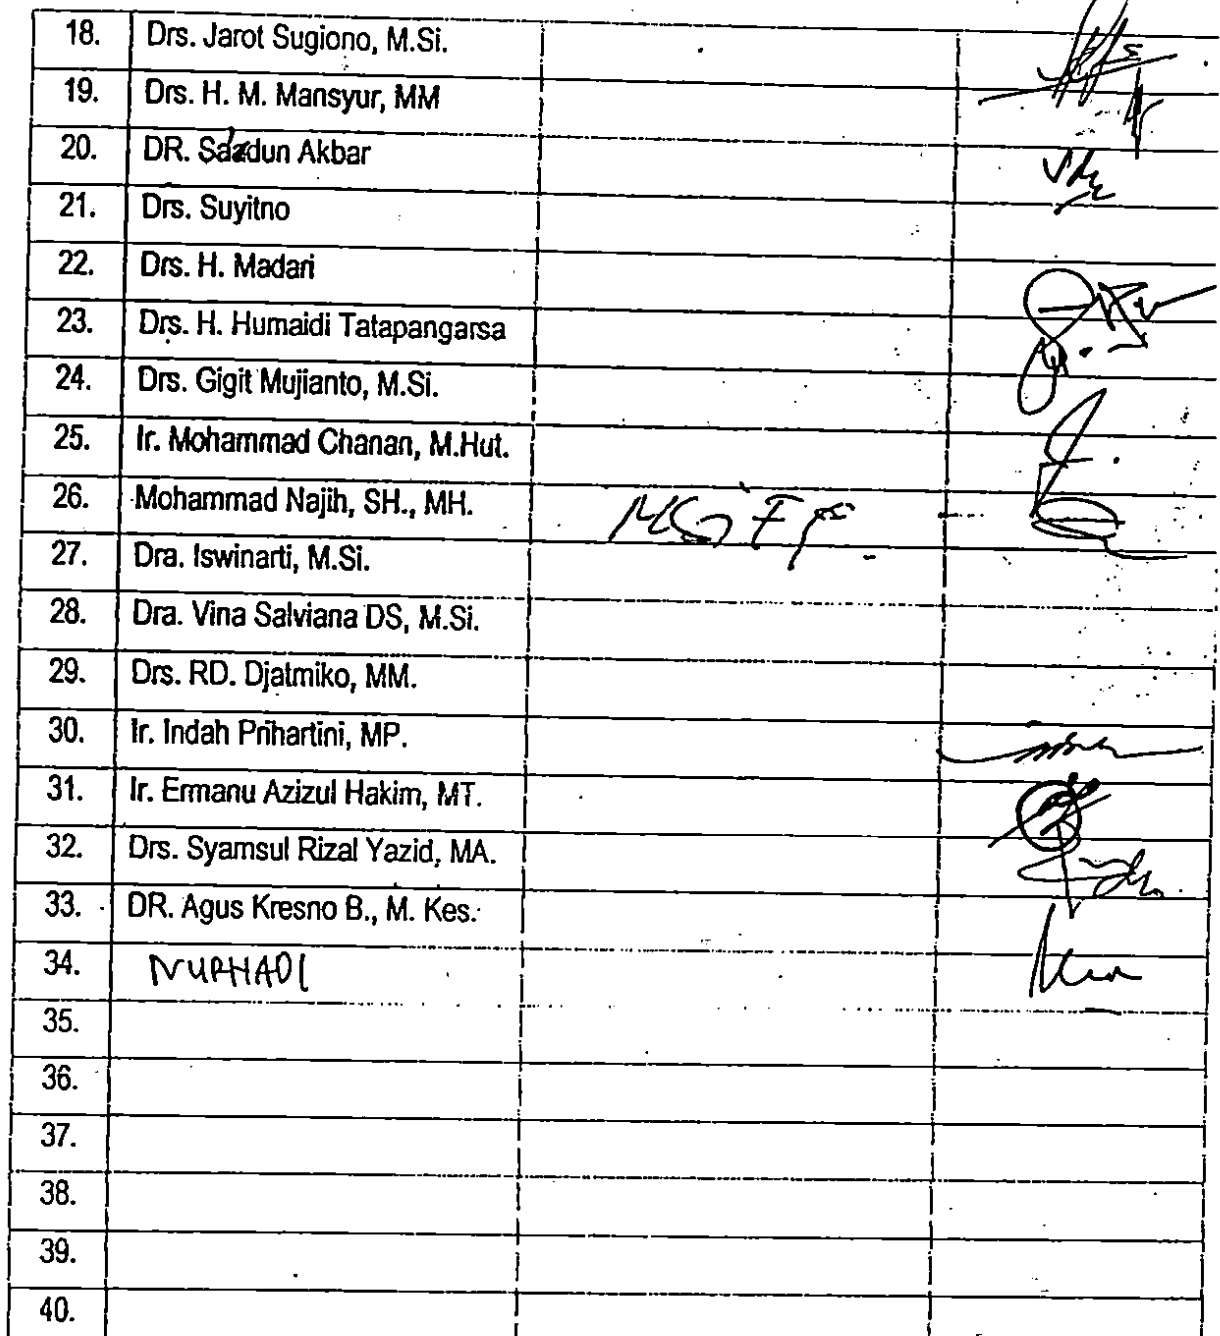 18. Drs. Jarot Sugiono, M.Si.
19. Drs. H. M. Mansyur, MM
20. DR. Sa'adun Akbar
21. Drs. Suyitno
22. Drs. H. Madari
23. Drs. H. Humaidi Tatapangarsa
24. Drs. Gigit Mujianto, M.Si.
25. Ir. Mohammad Chanan, M.Hut.
26. Mohammad Najih, SH., MH.
27. Dra. Iswinarti, M.Si.
28. Dra. Vina Salviana DS, M.Si.
29. Drs. RD. Djatmiko, MM.
30. Ir. Indah Prihartini, MP.
31. Ir. Ermanu Azizul Hakim, MT.
32. Drs. Syamsul Rizal Yazid, MA.
33. DR. Agus Kresno B., M. Kes.
34. NURHADI
35.
36.
37.
38.
39.
40.